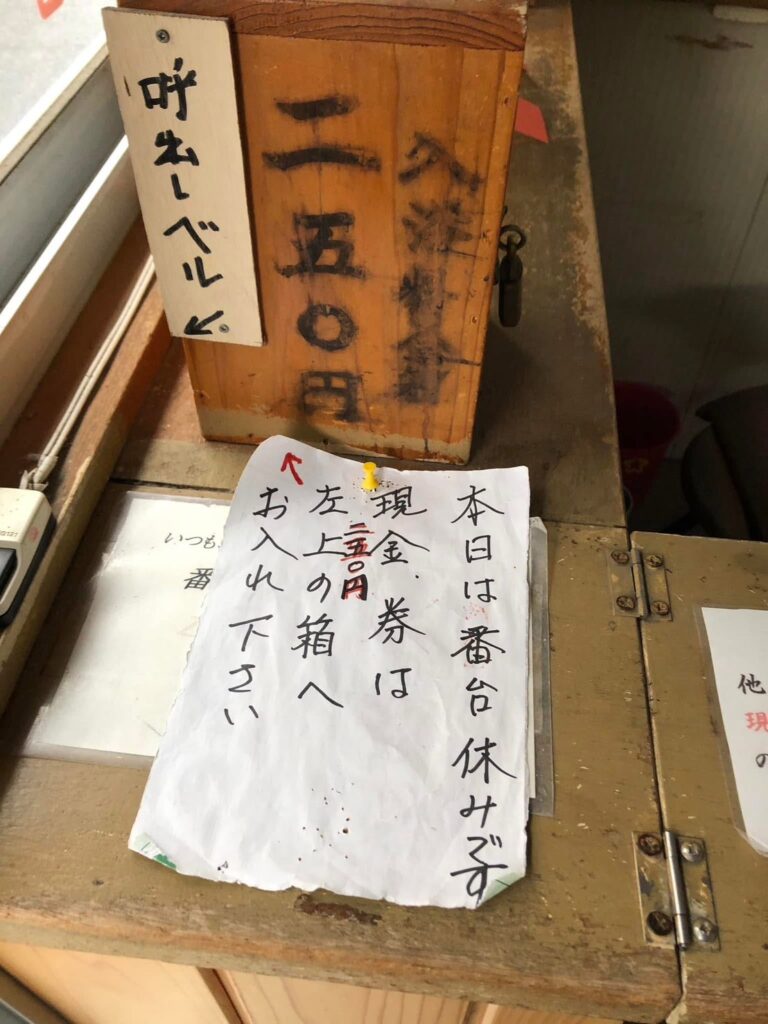 入浴料金
二五〇円
呼出しベル
↙
本日は番台休みです
現金、券は
二五〇円
左上の箱へ
お入れ下さい
↑
いつも
番
他
現
の